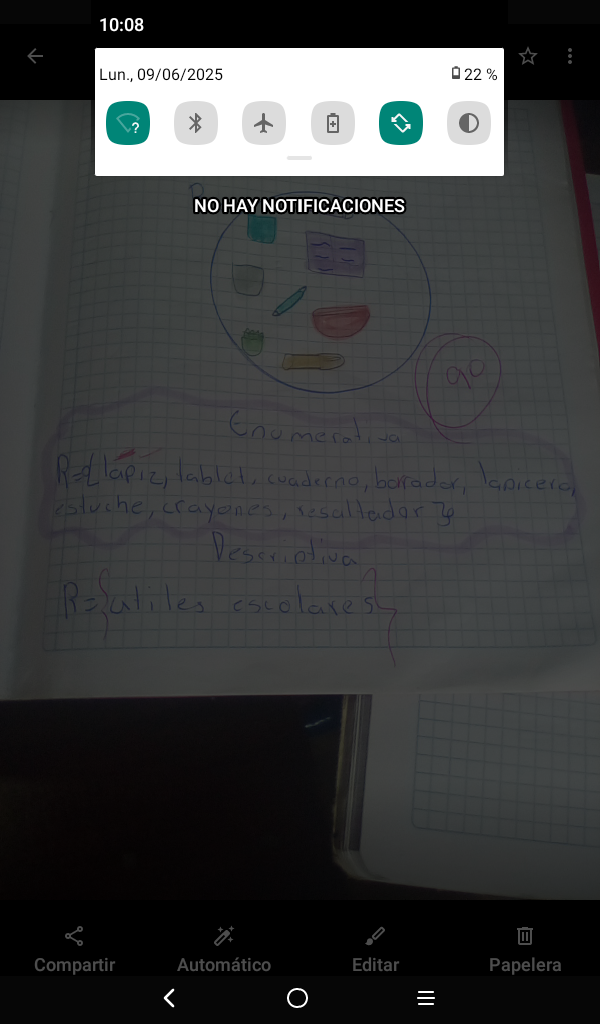 10:08
Lun., 09/06/2025 22 %
NO HAY NOTIFICACIONES
R
90
Enumerativa
R={lápiz, tablet, cuaderno, borrador, lapicero,
estuche, crayones, resaltador}
Descriptiva
R={utiles escolares}
Compartir Automático Editar Papelera